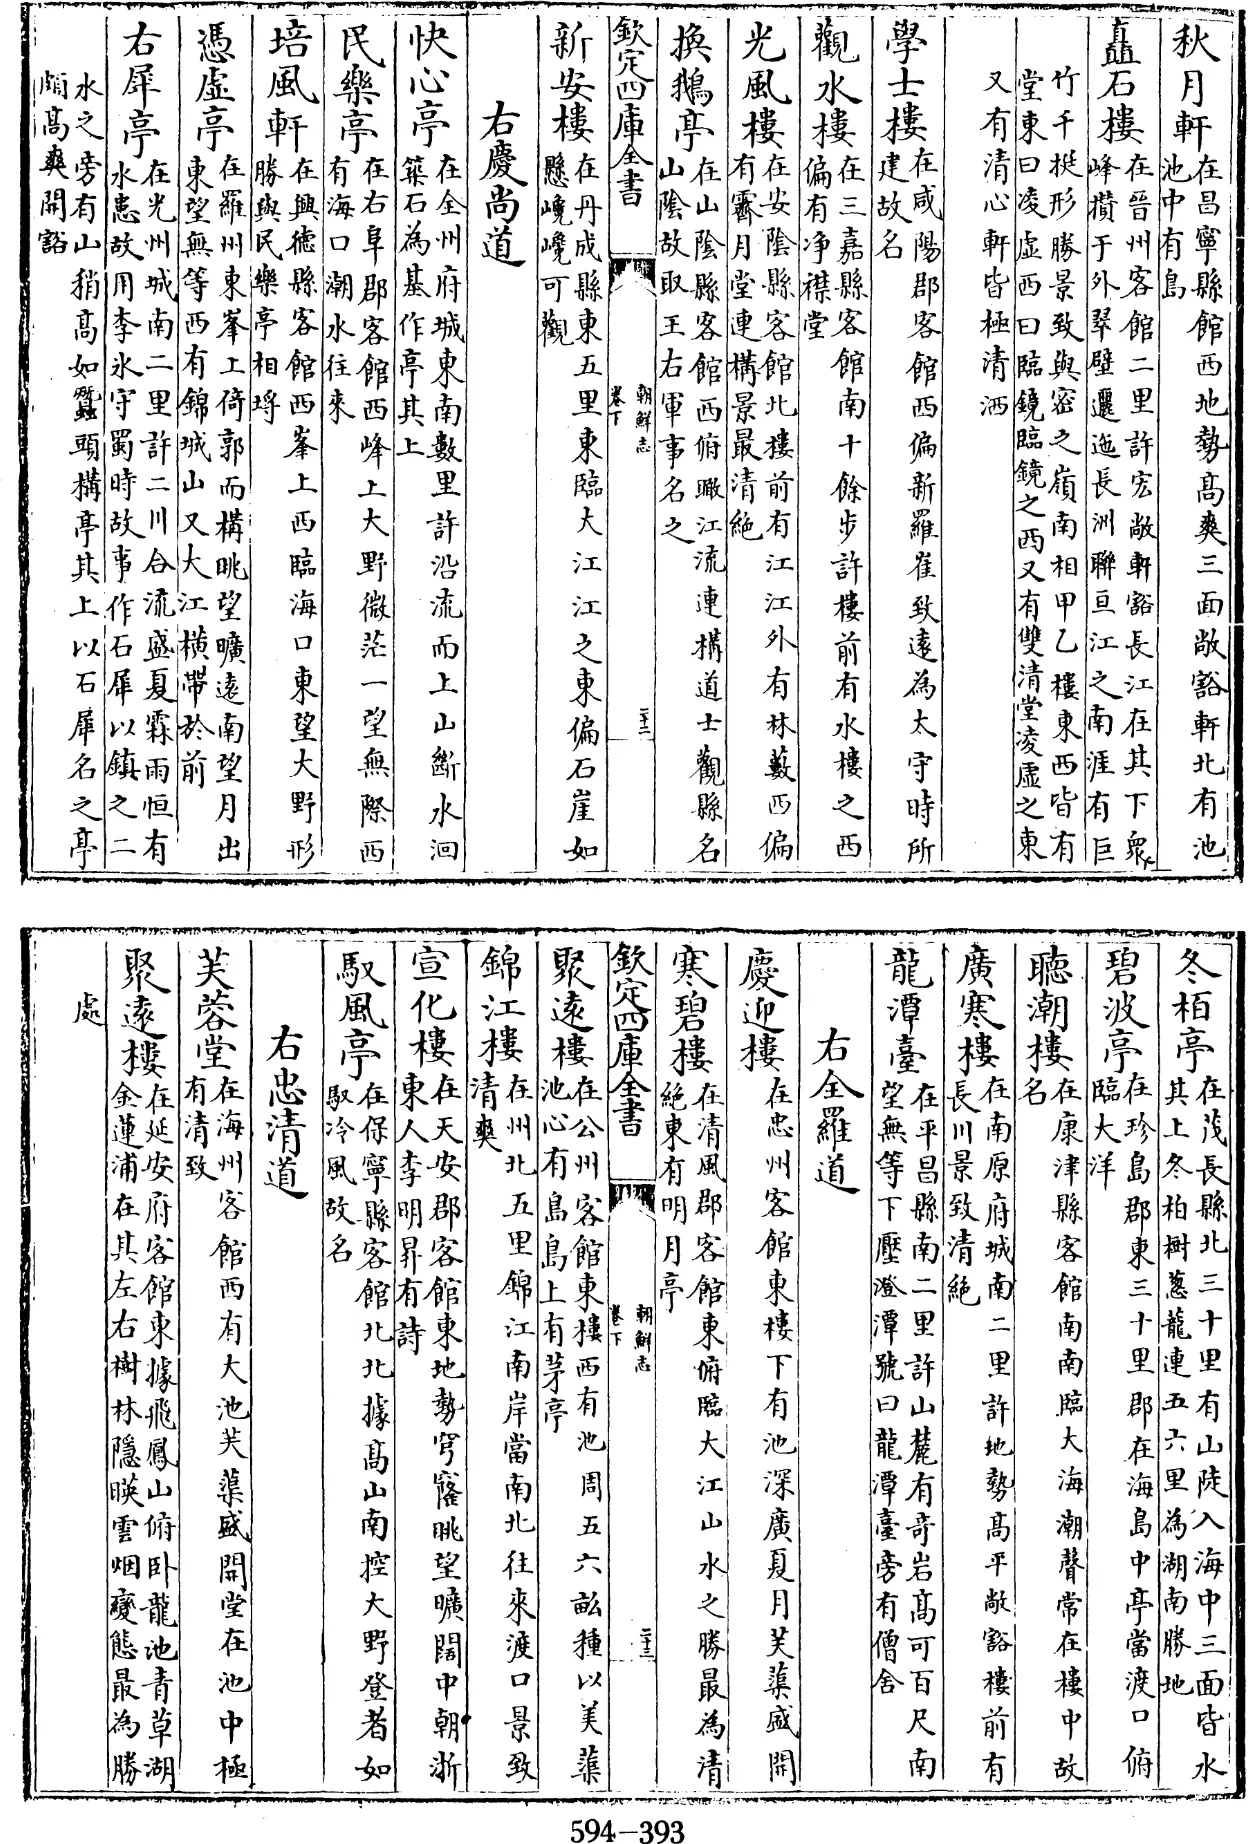 秋月軒在昌寧縣館西地勢髙爽三面敞豁軒北有池
池中有島
矗石樓在晉州客館二里許宏敞軒豁長江在其下衆
峰攢于外翠壁邐迤長洲聯亘江之南涯有巨
竹千挺形勝景致與密之嶺南相甲乙樓東西皆有
堂東曰凌虛西曰臨鏡臨鏡之西又有雙清堂凌虛之東
又有清心軒皆極清洒
學士樓在咸陽郡客館西偏新羅崔致遠為太守時所
建故名
觀水樓在三嘉縣客館南十餘步許樓前有水樓之西
偏有净襟堂
光風樓在安陰縣客館北樓前有江江外有林藪西偏
有霽月堂連構景最清絶
換鵝亭在山陰縣客館西俯瞰江流連構道士觀縣名
山陰故取王右軍事名之
欽定四庫全書
朝鮮志
卷下
二十二
新安樓在丹成縣東五里東臨大江江之東偏石崖如
懸巉巉可觀
右慶尚道
快心亭在全州府城東南數里許沿流而上山斷水洄
築石為基作亭其上
民樂亭在右阜郡客館西峰上大野微茫一望無際西
有海口潮水往來
培風軒在興德縣客館西峯上西臨海口東望大野形
勝與民樂亭相埒
憑虛亭在羅州東峯上倚郭而構眺望曠遠南望月出
東望無等西有錦城山又大江橫帶於前
右犀亭在光州城南二里許二川合流盛夏霖雨恒有
水患故用李氷守蜀時故事作石犀以鎮之二
水之旁有山稍髙如蠶頭構亭其上以石犀名之亭
頗髙爽開豁
冬栢亭在茂長縣北三十里有山陡入海中三面皆水
其上冬柏樹葱蘢連五六里為湖南勝地
碧波亭在珍島郡東三十里郡在海島中亭當渡口俯
臨大洋
聽潮樓在康津縣客館南南臨大海潮聲常在樓中故
名
廣寒樓在南原府城南二里許地勢髙平敞豁樓前有
長川景致清絶
龍潭臺在平昌縣南二里許山麓有奇岩髙可百尺南
望無等下壓澄潭號曰龍潭臺旁有僧舍
右全羅道
慶迎樓在忠州客館東樓下有池深廣夏月芙蕖盛開
寒碧樓在清風郡客館東俯臨大江山水之勝最為清
絶東有明月亭
欽定四庫全書
朝鮮志
卷下
二十三
聚遠樓在公州客館東樓西有池周五六畝種以美蕖
池心有島島上有茅亭
錦江樓在州北五里錦江南岸當南北往來渡口景致
清爽
宣化樓在天安郡客館東地勢穹窿眺望曠闊中朝浙
東人李明昇有詩
馭風亭在保寧縣客館北北據髙山南控大野登者如
馭冷風故名
右忠清道
芙蓉堂在海州客館西有大池芙蕖盛開堂在池中極
有清致
聚遠樓在延安府客館東據飛鳳山俯卧龍池青草湖
金蓮浦在其左右樹林隱暎雲烟變態最為勝
處
594-393